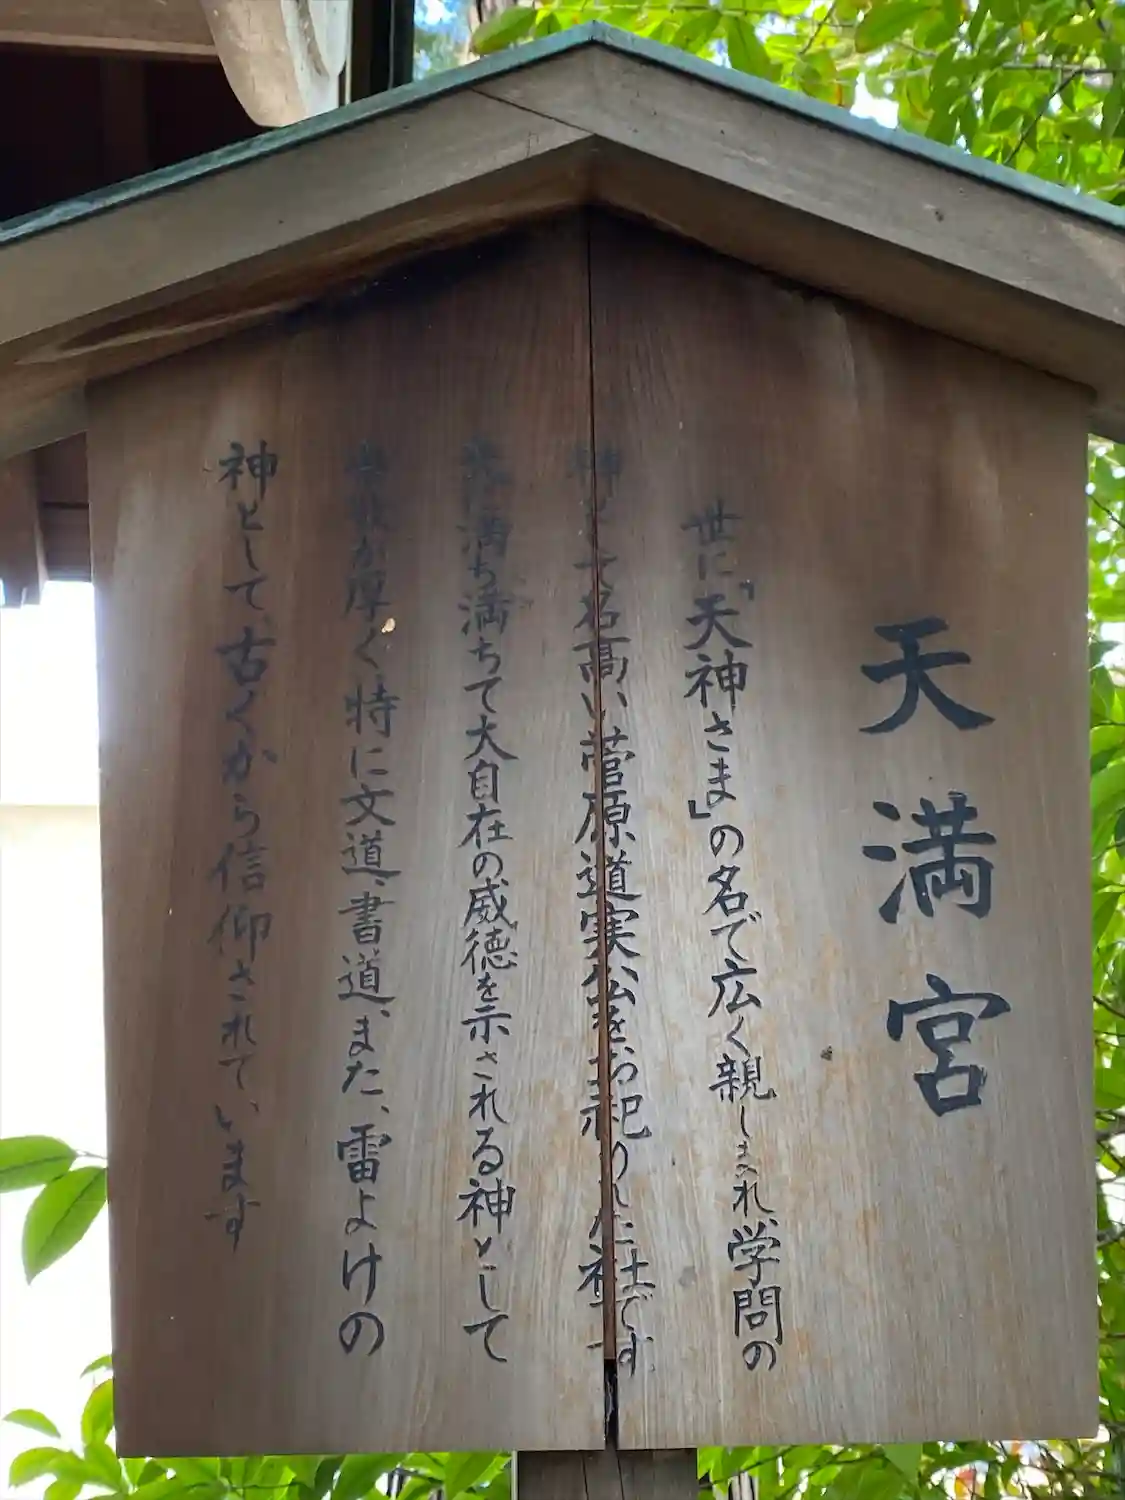 天満宮
世に「天神さま」の名で広く親しまれ学問の
神として名高い菅原道実公をお祀りした社です
満ち満ちて大自在の威徳を示される神として
が厚く、特に文道、書道、また、雷よけの
神として、古くから信仰されています